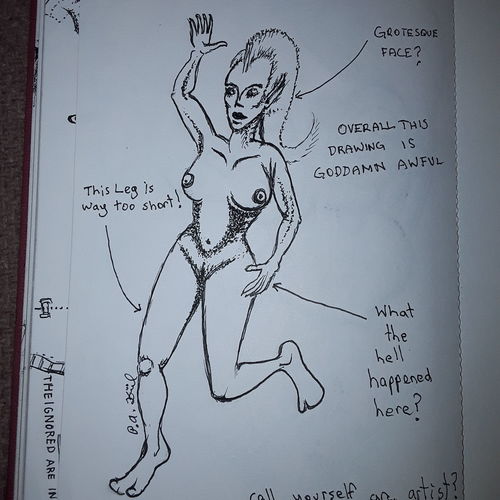 GROTESQUE
FACE?
OVERALL THIS
DRAWING IS
GODDAMN AWFUL
This Leg is
way too short!
What
the
hell
happened
here?
THE IGNORED ARE IN
call yourself an artist?